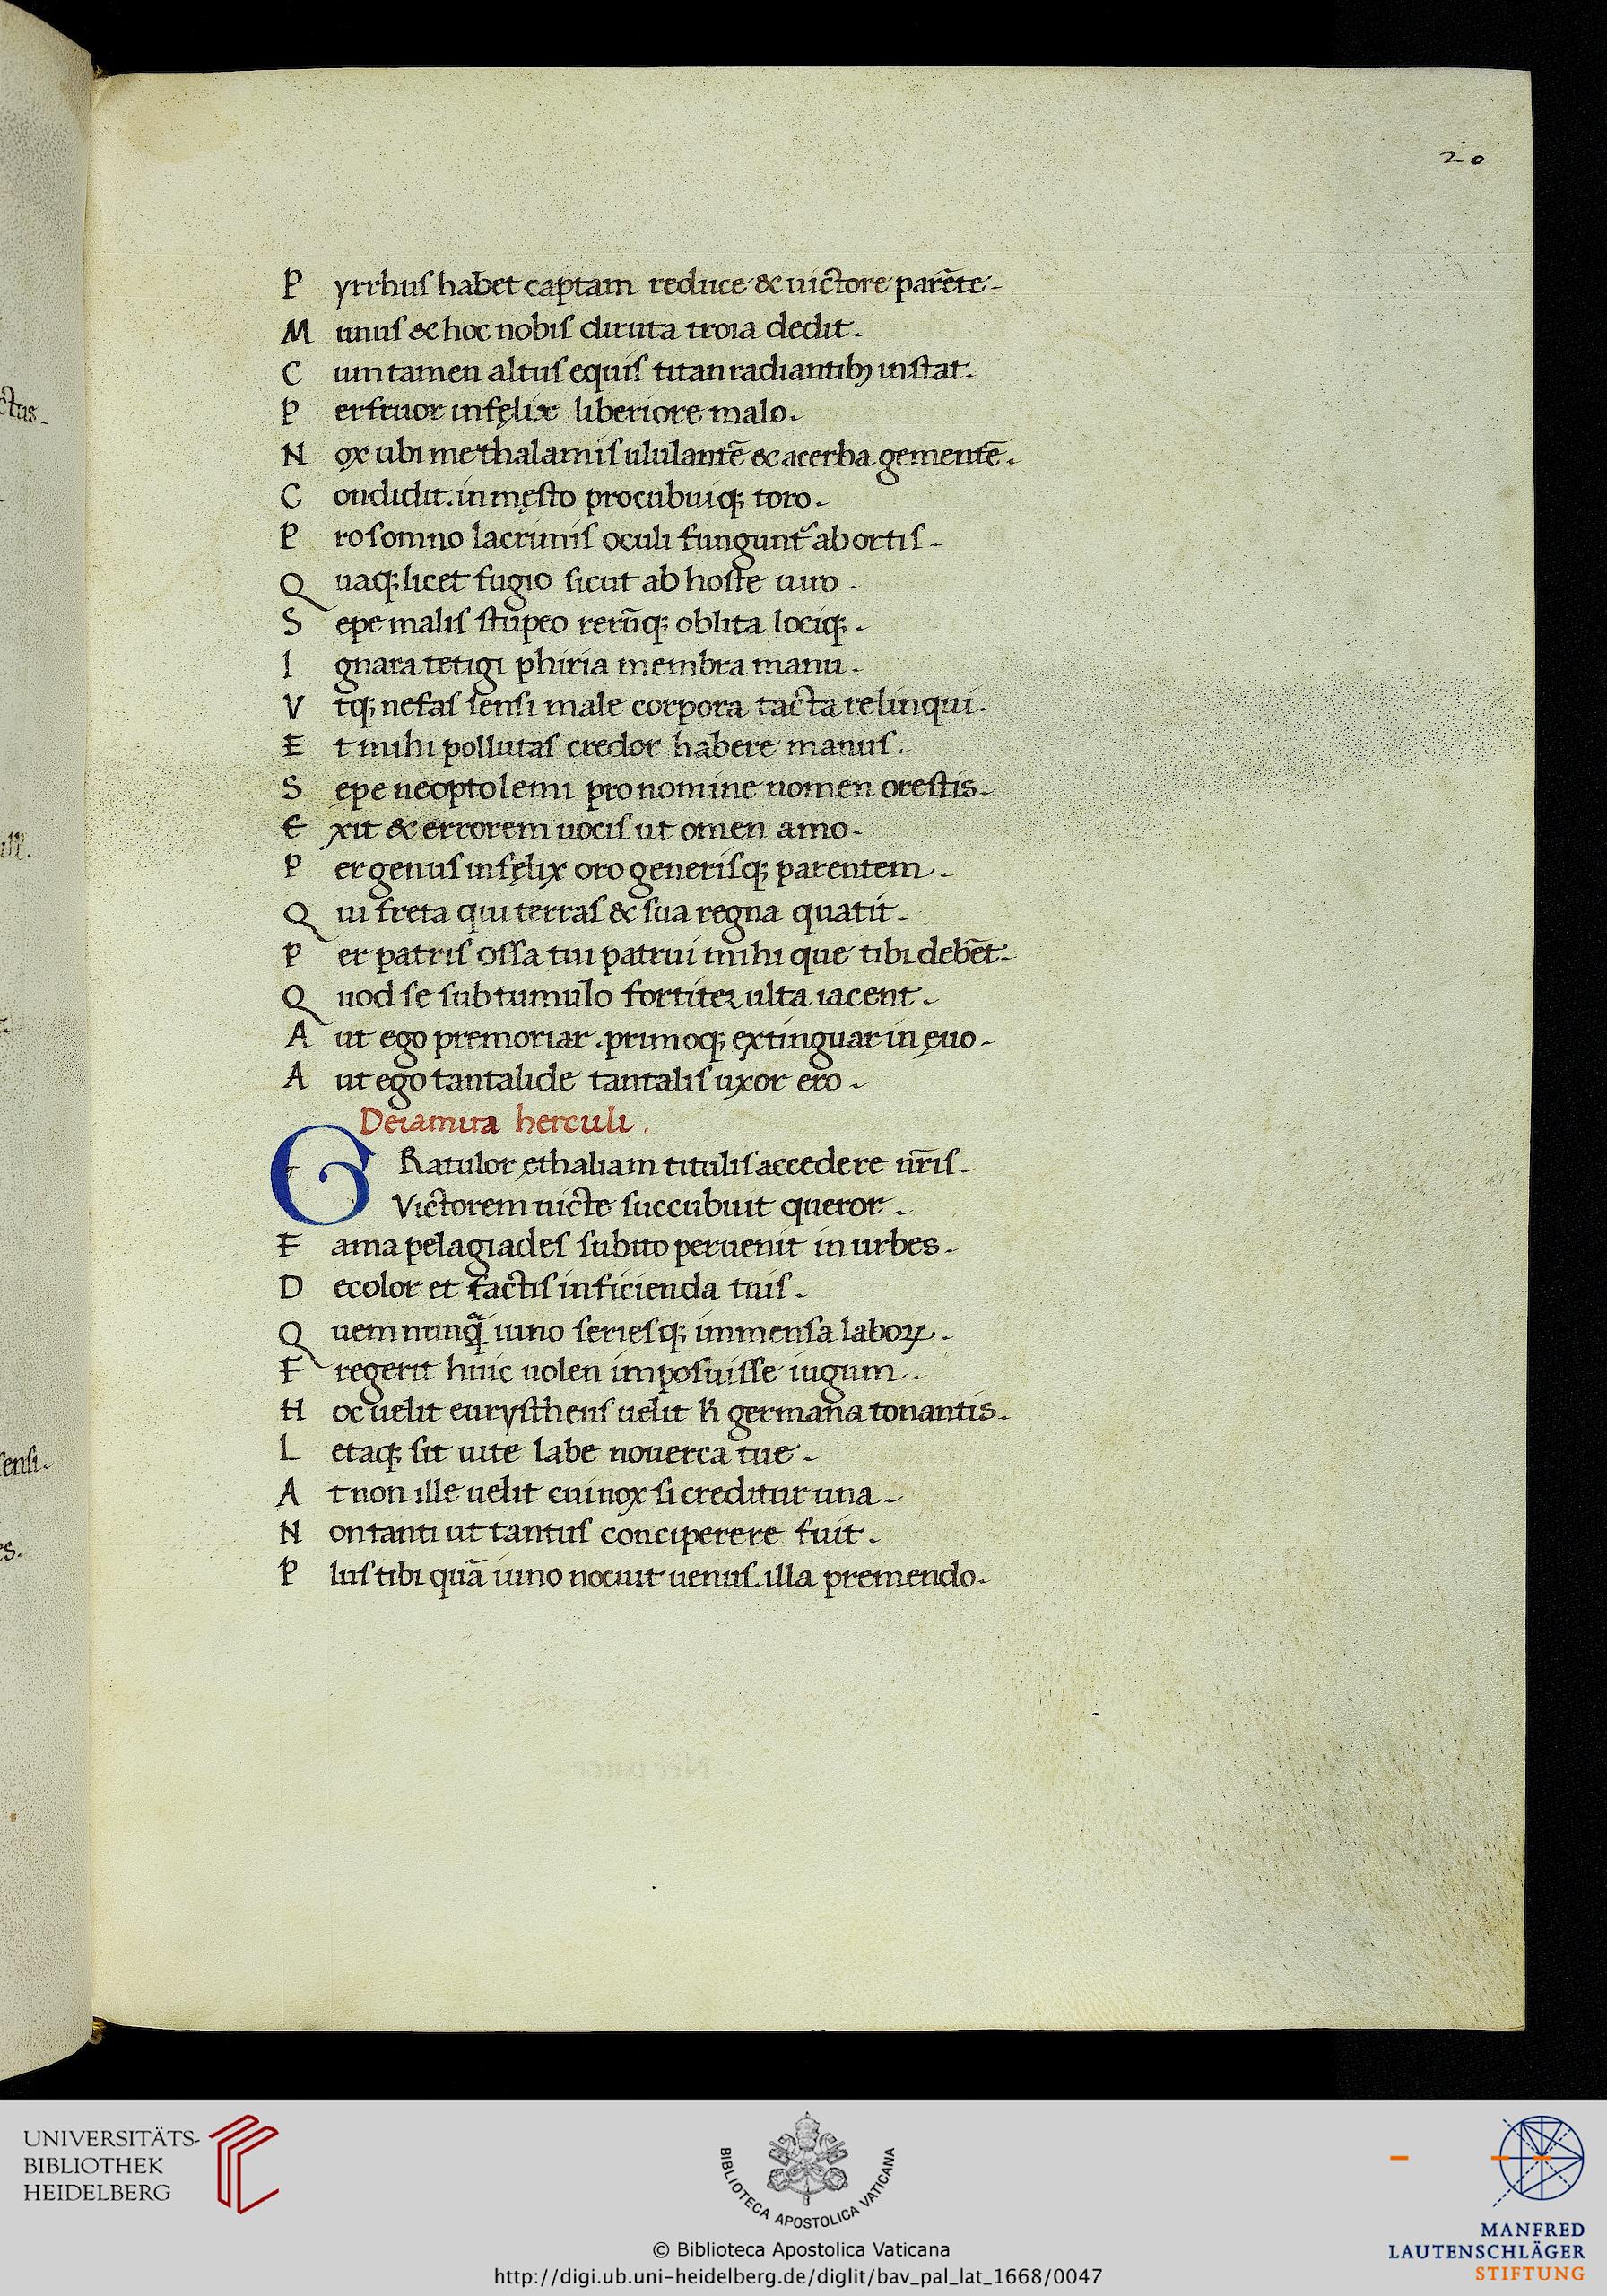 20
ctus.
ill.
sensi.
es.
Pyrrhus habet captam reduce & uictore parēte.
Munus & hoc nobis diruta troia dedit.
Cum tamen altus equis titan radiantibꝫ instat.
Perfruor infęlix liberiore malo.
Nox ubi me thalamis ululantē & acerba gementē.
Condidit. in męsto procubuiqꝫ toro.
Pro somno lacrimis oculi fungunt᷑ abortis.
Quaqꝫ licet fugio sicut ab hoste uiro.
Sepe malis stupeo rerūqꝫ oblita lociqꝫ.
Ignara tetigi phiria membra manu.
Vtqꝫ nefas sensi male corpora tacta relinqui.
Et mihi pollutas credor habere manus.
Sepe neoptolemi pro nomine nomen orestis.
Exit & errorem uocis ut omen amo.
Per genus infęlix oro generisqꝫ parentem.
Qui freta qui terras & sua regna quatit.
Per patris ossa tui patrui mihi que tibi debēt.
Quod se sub tumulo fortiter ulta iacent.
Aut ego premoriar. primoqꝫ extinguar in ęuo.
Aut ego tantalide tantalis uxor ero.
Deiamira herculi.
GRatulor ęthaliam titulis accedere nr̄is.
Victorem uicte succubuit queror.
Fama pelagiades subito peruenit in urbes.
Decolor et factis inficienda tuis.
Quem nunqᷓ iuno seriesqꝫ immensa laboꝝ.
Fregerit huic uolen imposuisse iugum.
Hoc uelit eurystheus uelit h̄ germana tonantis.
Letaqꝫ sit uite labe nouerca tue.
At non ille uelit cui nox si creditur una.
Non tanti ut tantus conciperere fuit.
Plus tibi quā iuno nocuit uenus. illa premendo.
UNIVERSITÄTS-
BIBLIOTHEK
HEIDELBERG
BIBLIOTECA APOSTOLICA VATICANA
© Biblioteca Apostolica Vaticana
http://digi.ub.uni-heidelberg.de/diglit/bav_pal_lat_1668/0047
MANFRED
LAUTENSCHLÄGER
STIFTUNG